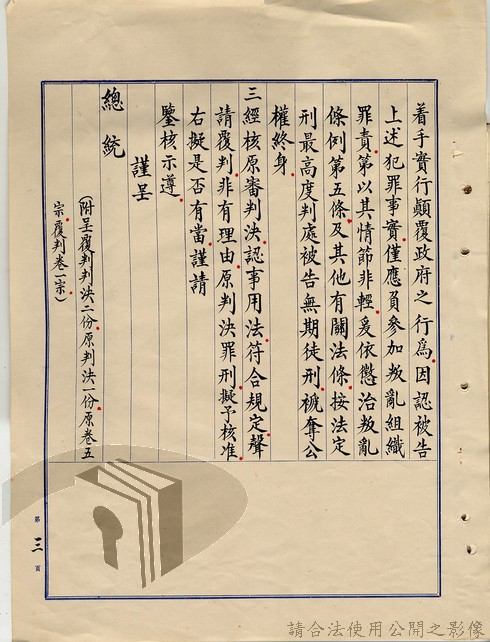 着手實行顛覆政府之行為，因認被告
上述犯罪事實，僅應負參加叛亂組織
罪責，第以其情節非輕，爰依懲治叛亂
條例第五條及其他有關法條，按法定
刑最高度判處被告無期徒刑，褫奪公
權終身。
三經核原審判決，認事用法，符合規定，聲
請覆判，非有理由，原判決罪刑，擬予核准。
右擬是否有當，謹請
鑒核示遵。
謹呈
總統
（附呈覆判判決二份，原判決一份，原卷五
宗，覆判卷一宗）
第三頁
請合法使用公開之影像